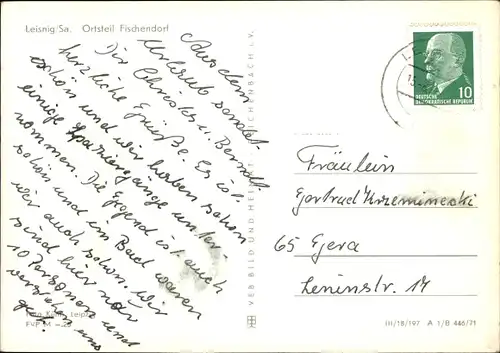 Leisnig/Sa. Ortsteil Fischendorf
Aus dem
Urlaub sendet
Dir Christa u. Bernd
herzliche Grüße. Es ist
schön und wir haben schon
einige Spaziergänge unter-
nommen. Die Gegend ist auch
schön und im Bad waren
wir auch schon. Wir
sind hier nur
10 Personen und
verstehen uns
gut.
Leipzig
VEB BILD UND HEIMAT REICHENBACH i. V.
10
DEUTSCHE
DEMOKRATISCHE REPUBLIK
Fräulein
Gertrud Krzeminski
65 Gera
Leninstr. 14
III/18/197 A 1/B 446/71